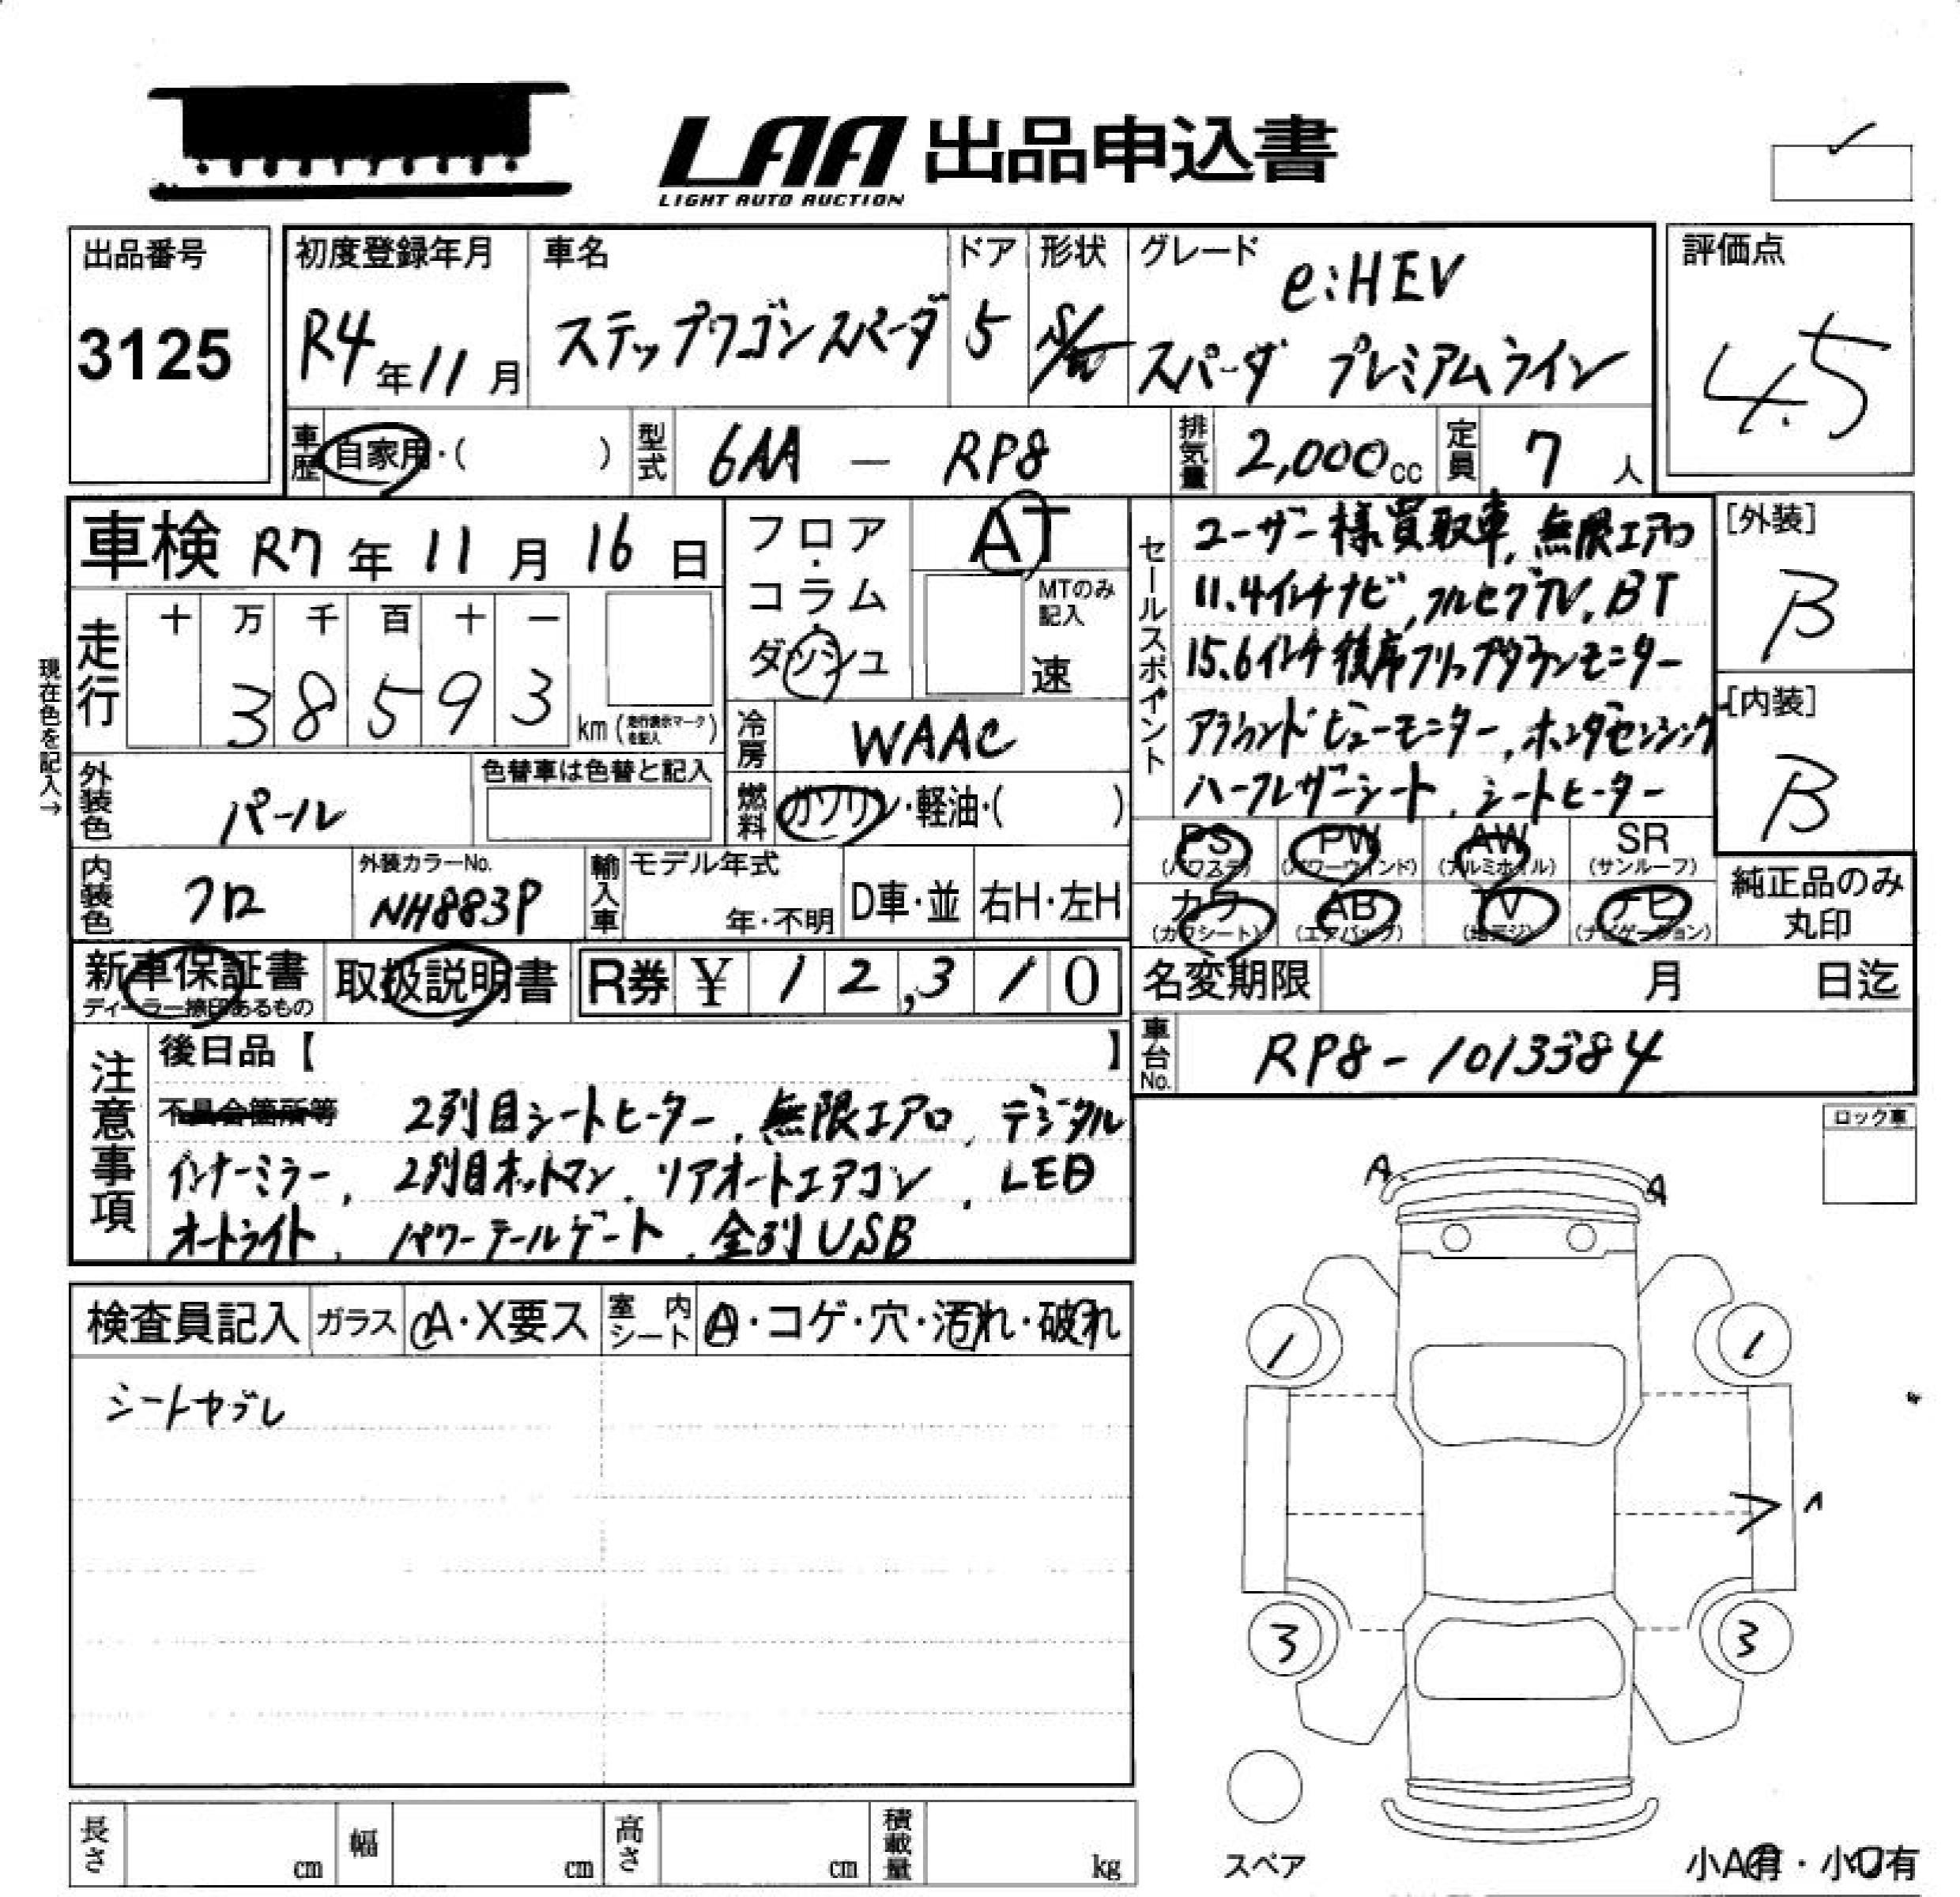 LAA 出品申込書
LIGHT AUTO AUCTION
出品番号
3125
初度登録年月
R4年11月
車名
ステップワゴンスパーダ
ドア
5
形状
S/W
グレード
e:HEV
スパーダ プレミアムライン
評価点
4.5
車歴
自家用・( )
型式
6AA - RP8
排気量
2,000cc
定員
7人
車検 R7年11月16日
フロア・コラム・ダッシュ
AT
MTのみ記入
速
セールスポイント
ユーザー様買取車,無限エアロ
11.4インチナビ,フルセグTV,BT
15.6インチ後席フリップダウンモニター
アラウンドビューモニター,ホンダセンシング
ハーフレザーシート,シートヒーター
[外装]
B
[内装]
B
現在色を記入→
走行
十 万 千 百 十 一
3 8 5 9 3
km (走行表示マークを記入)
冷房
WAAC
外装色
パール
色替車は色替と記入
燃料
ガソリン・軽油・( )
PS
(パワステ)
PW
(パワーウインド)
AW
(アルミホイル)
SR
(サンルーフ)
カワ
(カワシート)
AB
(エアバック)
TV
(地デジ)
ナビ
(ナビゲーション)
純正品のみ
丸印
内装色
クロ
外装カラーNo.
NH883P
輸入車
モデル年式
年・不明
D車・並
右H・左H
新車保証書
ディーラー捺印あるもの
取扱説明書
R券 ¥ 12,310
名変期限 月 日迄
車台No.
RP8-1013384
注意事項
後日品【 】
不具合箇所等 2列目シートヒーター,無限エアロ,デジタル
インナーミラー,2列目オットマン,リアオートエアコン,LED
オートライト,パワーテールゲート,全列USB
ロック車
A A
検査員記入
ガラス
A・X要ス
室内シート
A・コゲ・穴・汚れ・破れ
シートヤブレ
1 1
3 3
スペア
小A有・小凹有
長さ cm
幅 cm
高さ cm
積載量 kg